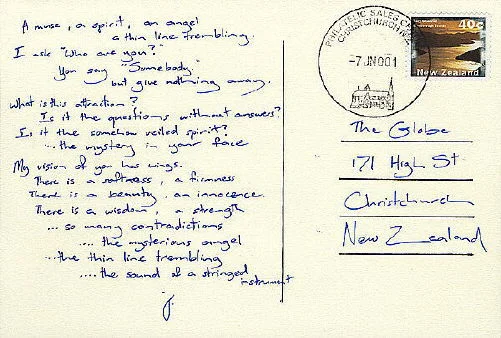 A muse, a spirit, an angel
a thin line trembling.
I ask "Who are you?"
You say "Somebody"
but give nothing away.
What is this attraction?
Is it the questions without answers?
Is it the somehow veiled spirit?
...the mystery in your face
My vision of you has wings.
There is a softness, a firmness
There is a beauty, an innocence.
There is a wisdom, a strength
... so many contradictions
.... the mysterious angel
...the thin line trembling
.... the sound of a stringed instrument
j.
PHILATELIC SALES
CHRISTCHURCH
-7 JN 00 1
40c
New Zealand
The Globe
171 High St
Christchurch
New Zealand